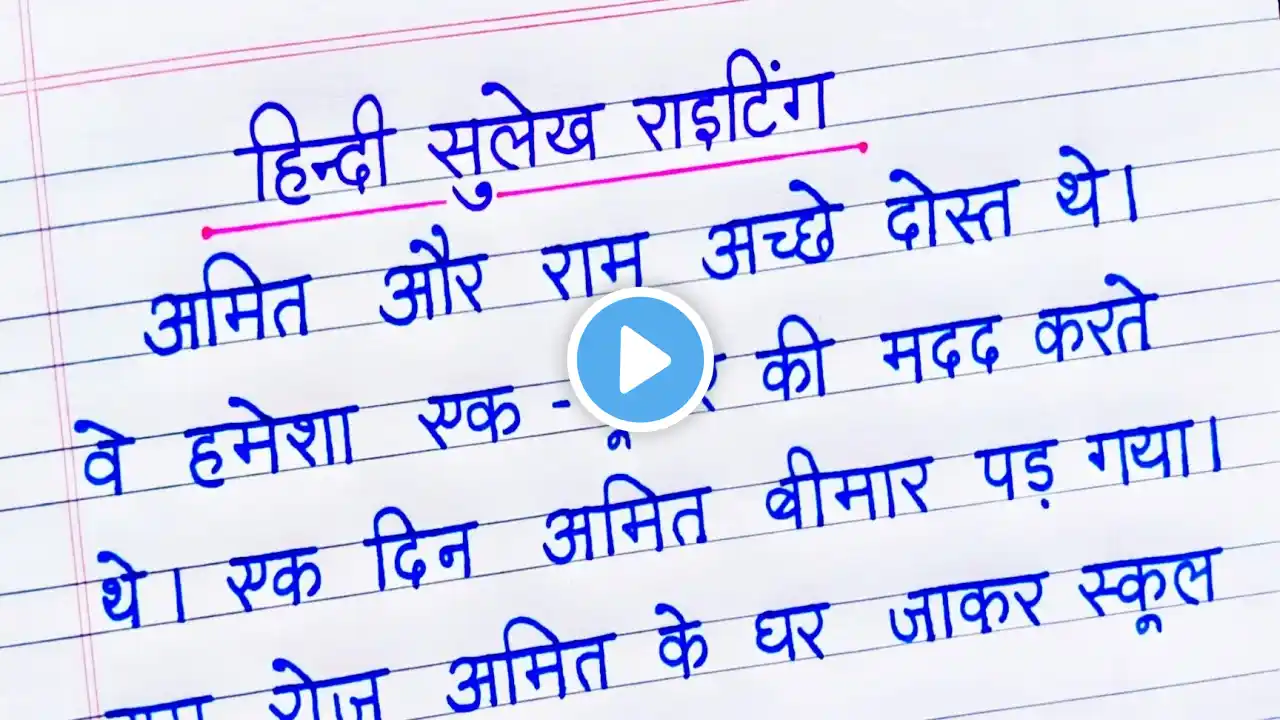 हिन्दी सुलेख राइटिंग
अमित और राम अच्छे दोस्त थे।
वे हमेशा एक - की मदद करते
थे। एक दिन अमित बीमार पड़ गया।
रोज अमित के घर जाकर स्कूल